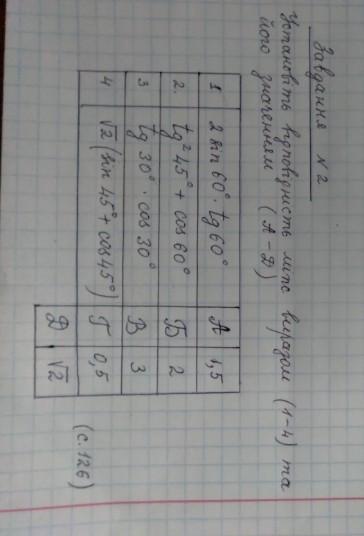 Завдання №2
Установіть відповідність між виразом (1-4) та
його значенням (А-Д)
1 2 sin 60° · tg 60° А 1,5
2. tg² 45° + cos 60° Б 2
3 tg 30° · cos 30° В 3
4 √2 (sin 45° + cos 45°) Г 0,5
Д √2
(с. 126)